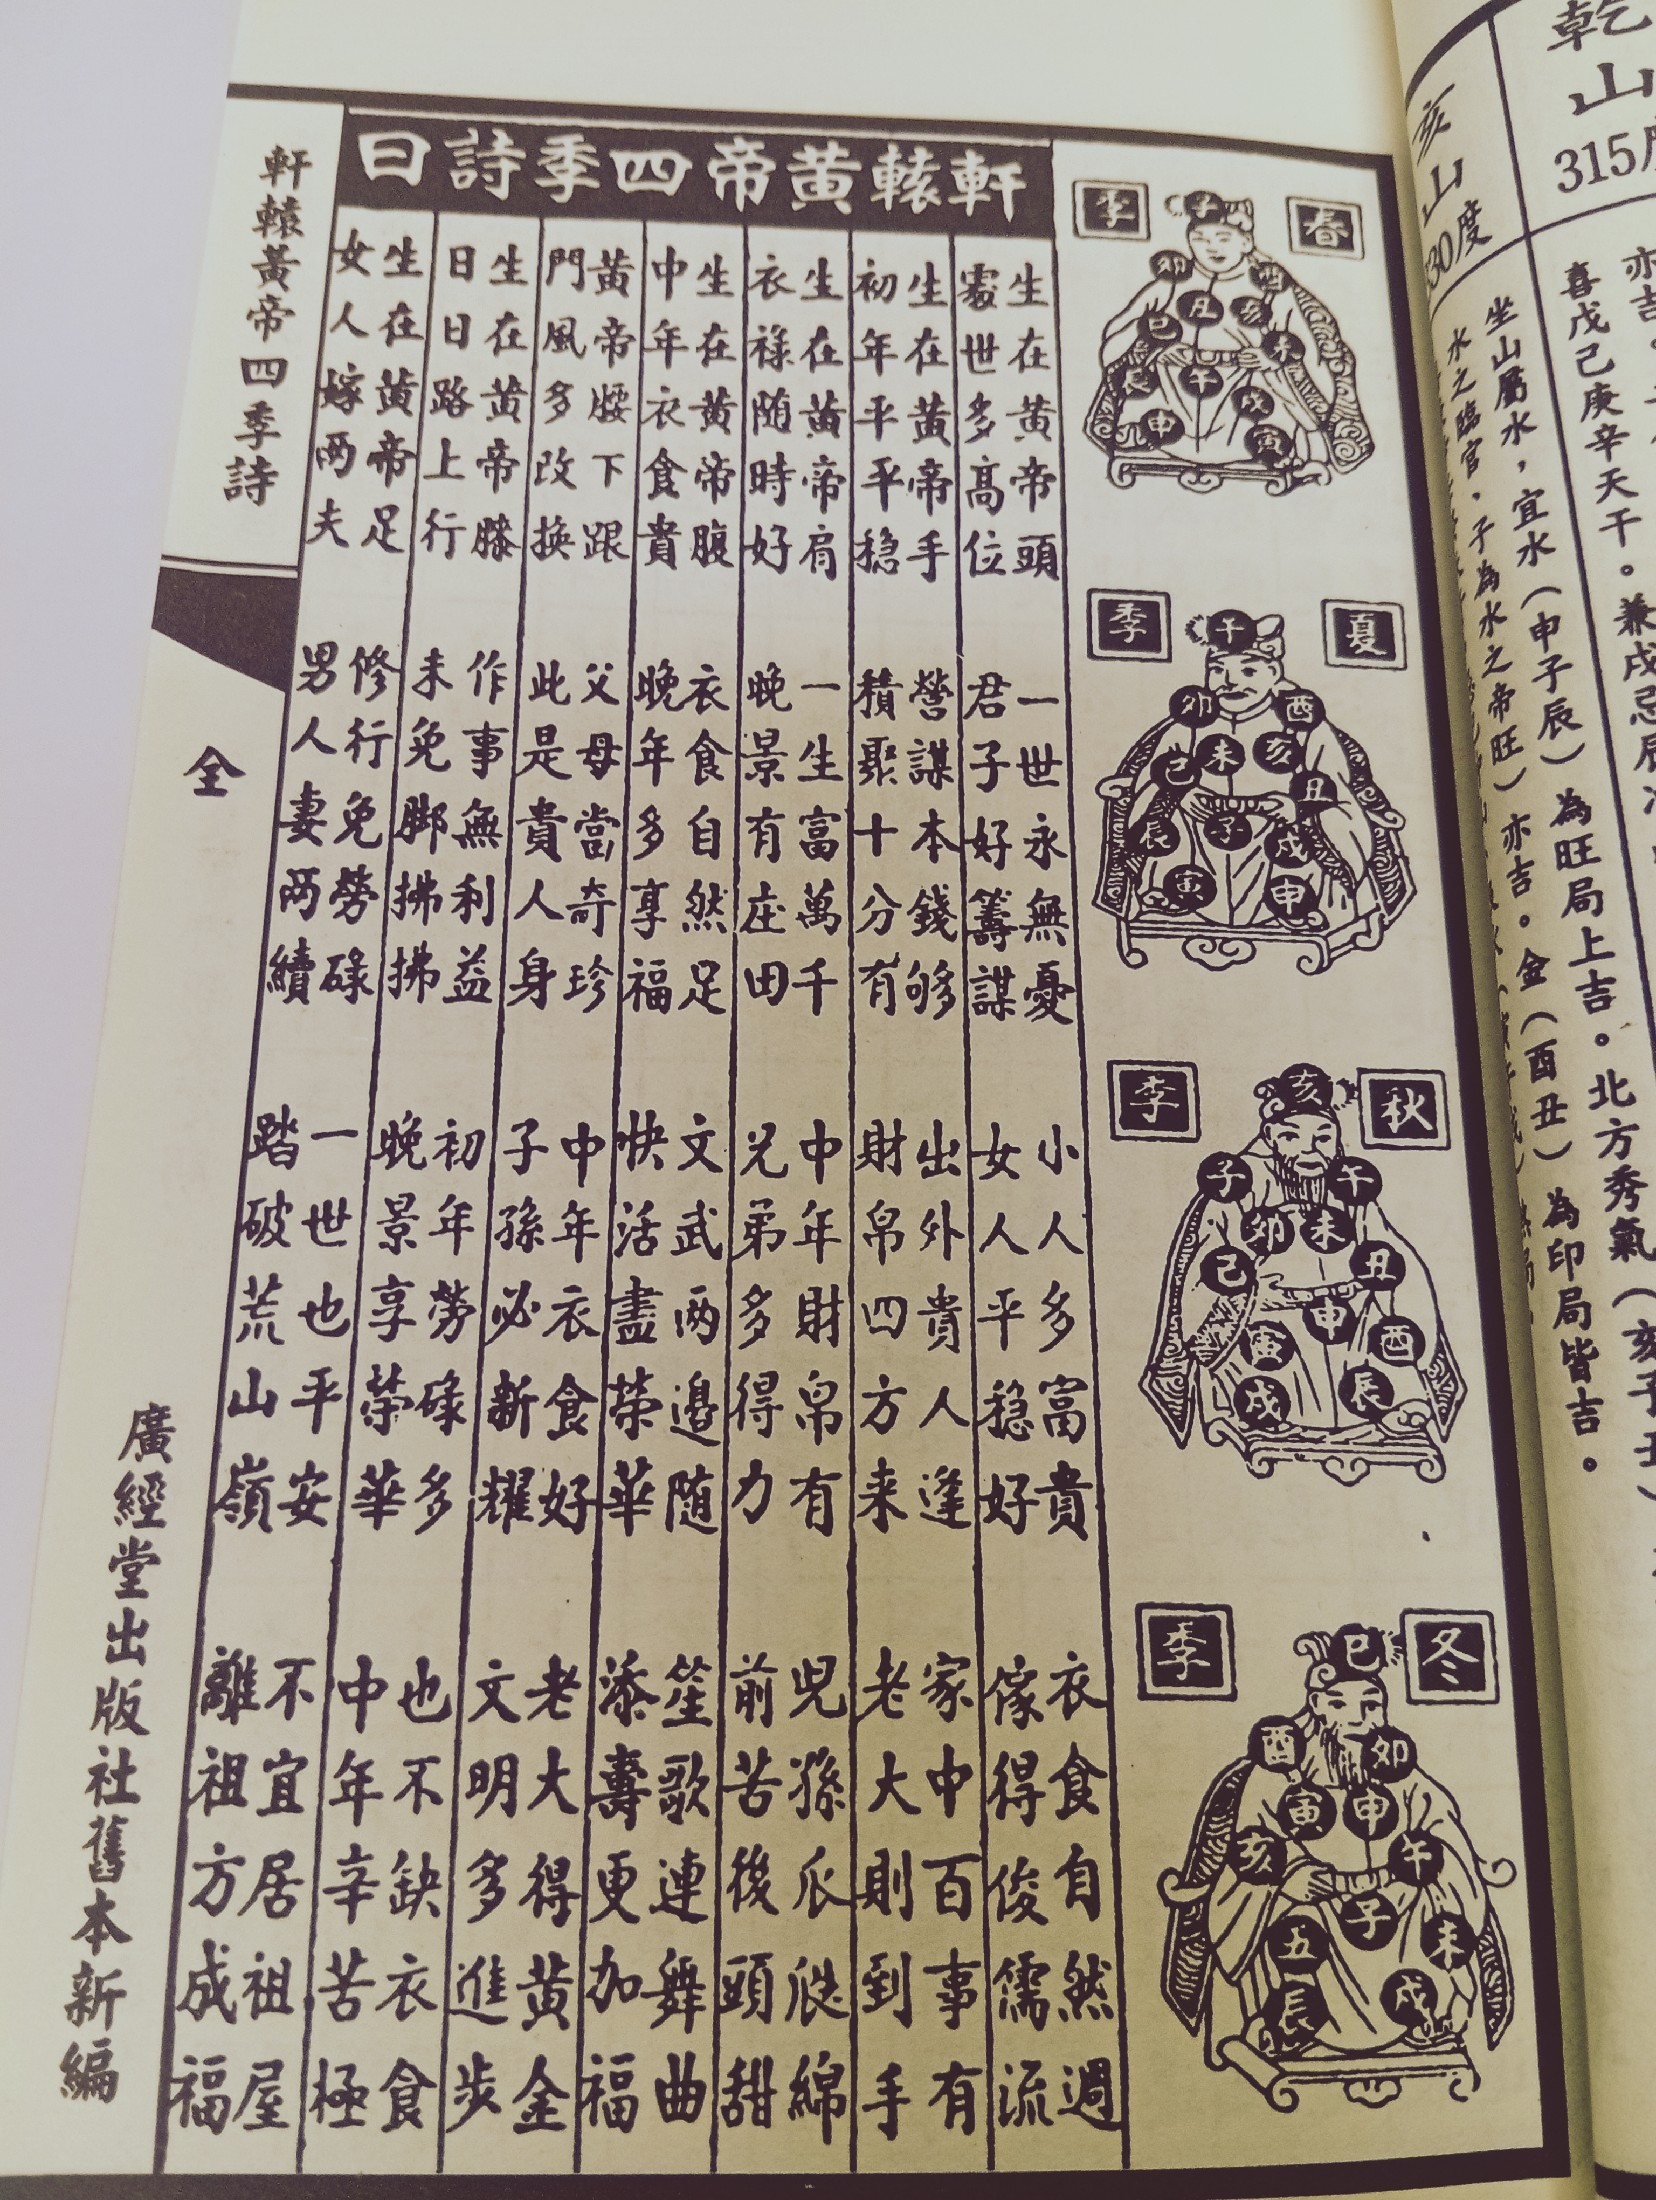 乾山
315
亥山
喜戊己庚辛天干。兼戌忌辰
坐山屬水，宜水（申子辰）為旺局上吉。北方秀氣（亥子丑）
水之臨官．子為水之帝旺）亦吉。金（酉丑）為印局皆吉。
春季
子
卯 酉
丑 亥
巳 未
辰 午 戌
申 寅
夏季
午
卯 酉
巳 未 亥 丑
辰 子 戌
寅 申
秋季
亥
子 午
卯 未
巳 丑
寅 申 酉
戌 辰
冬季
巳
酉 卯
寅 申
亥 午
丑 子 未
辰 戌
軒轅黄帝四季詩曰
生在黄帝頭 一世永無憂 小人多富貴 衣食自然週
處世多高位 君子好籌謀 女人平穩好 傢得俊儒流
生在黄帝手 營謀本錢够 出外貴人逢 家中百事有
初年平平穩 積聚十分有 財帛四方来 老大則到手
生在黄帝肩 一生富萬千 中年財帛有 兒孫爪瓞綿
衣祿随時好 晚景有庄田 兄弟多得力 前苦後頭甜
生在黄帝腹 衣食自然足 文武两邉随 笙歌連舞曲
中年衣食貴 晚年多享福 快活盡榮華 添壽更加福
黄帝腰下跟 父母當奇珍 中年衣食好 老大得黄金
門風多改换 此是貴人身 子孫必新耀 文明多進步
生在黄帝膝 作事無利益 初年勞碌多 也不缺衣食
日日路上行 未免脚拂拂 晚景享榮華 中年辛苦極
生在黄帝足 修行免勞碌 一世也平安 不宜居祖屋
女人嫁两夫 男人妻两續 踏破荒山嶺 離祖方成福
軒轅黃帝四季詩
全
廣經堂出版社舊本新編